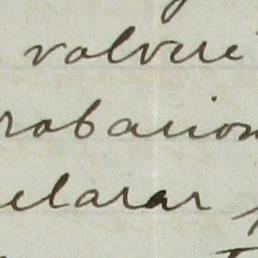 volveré
robacion
elarar